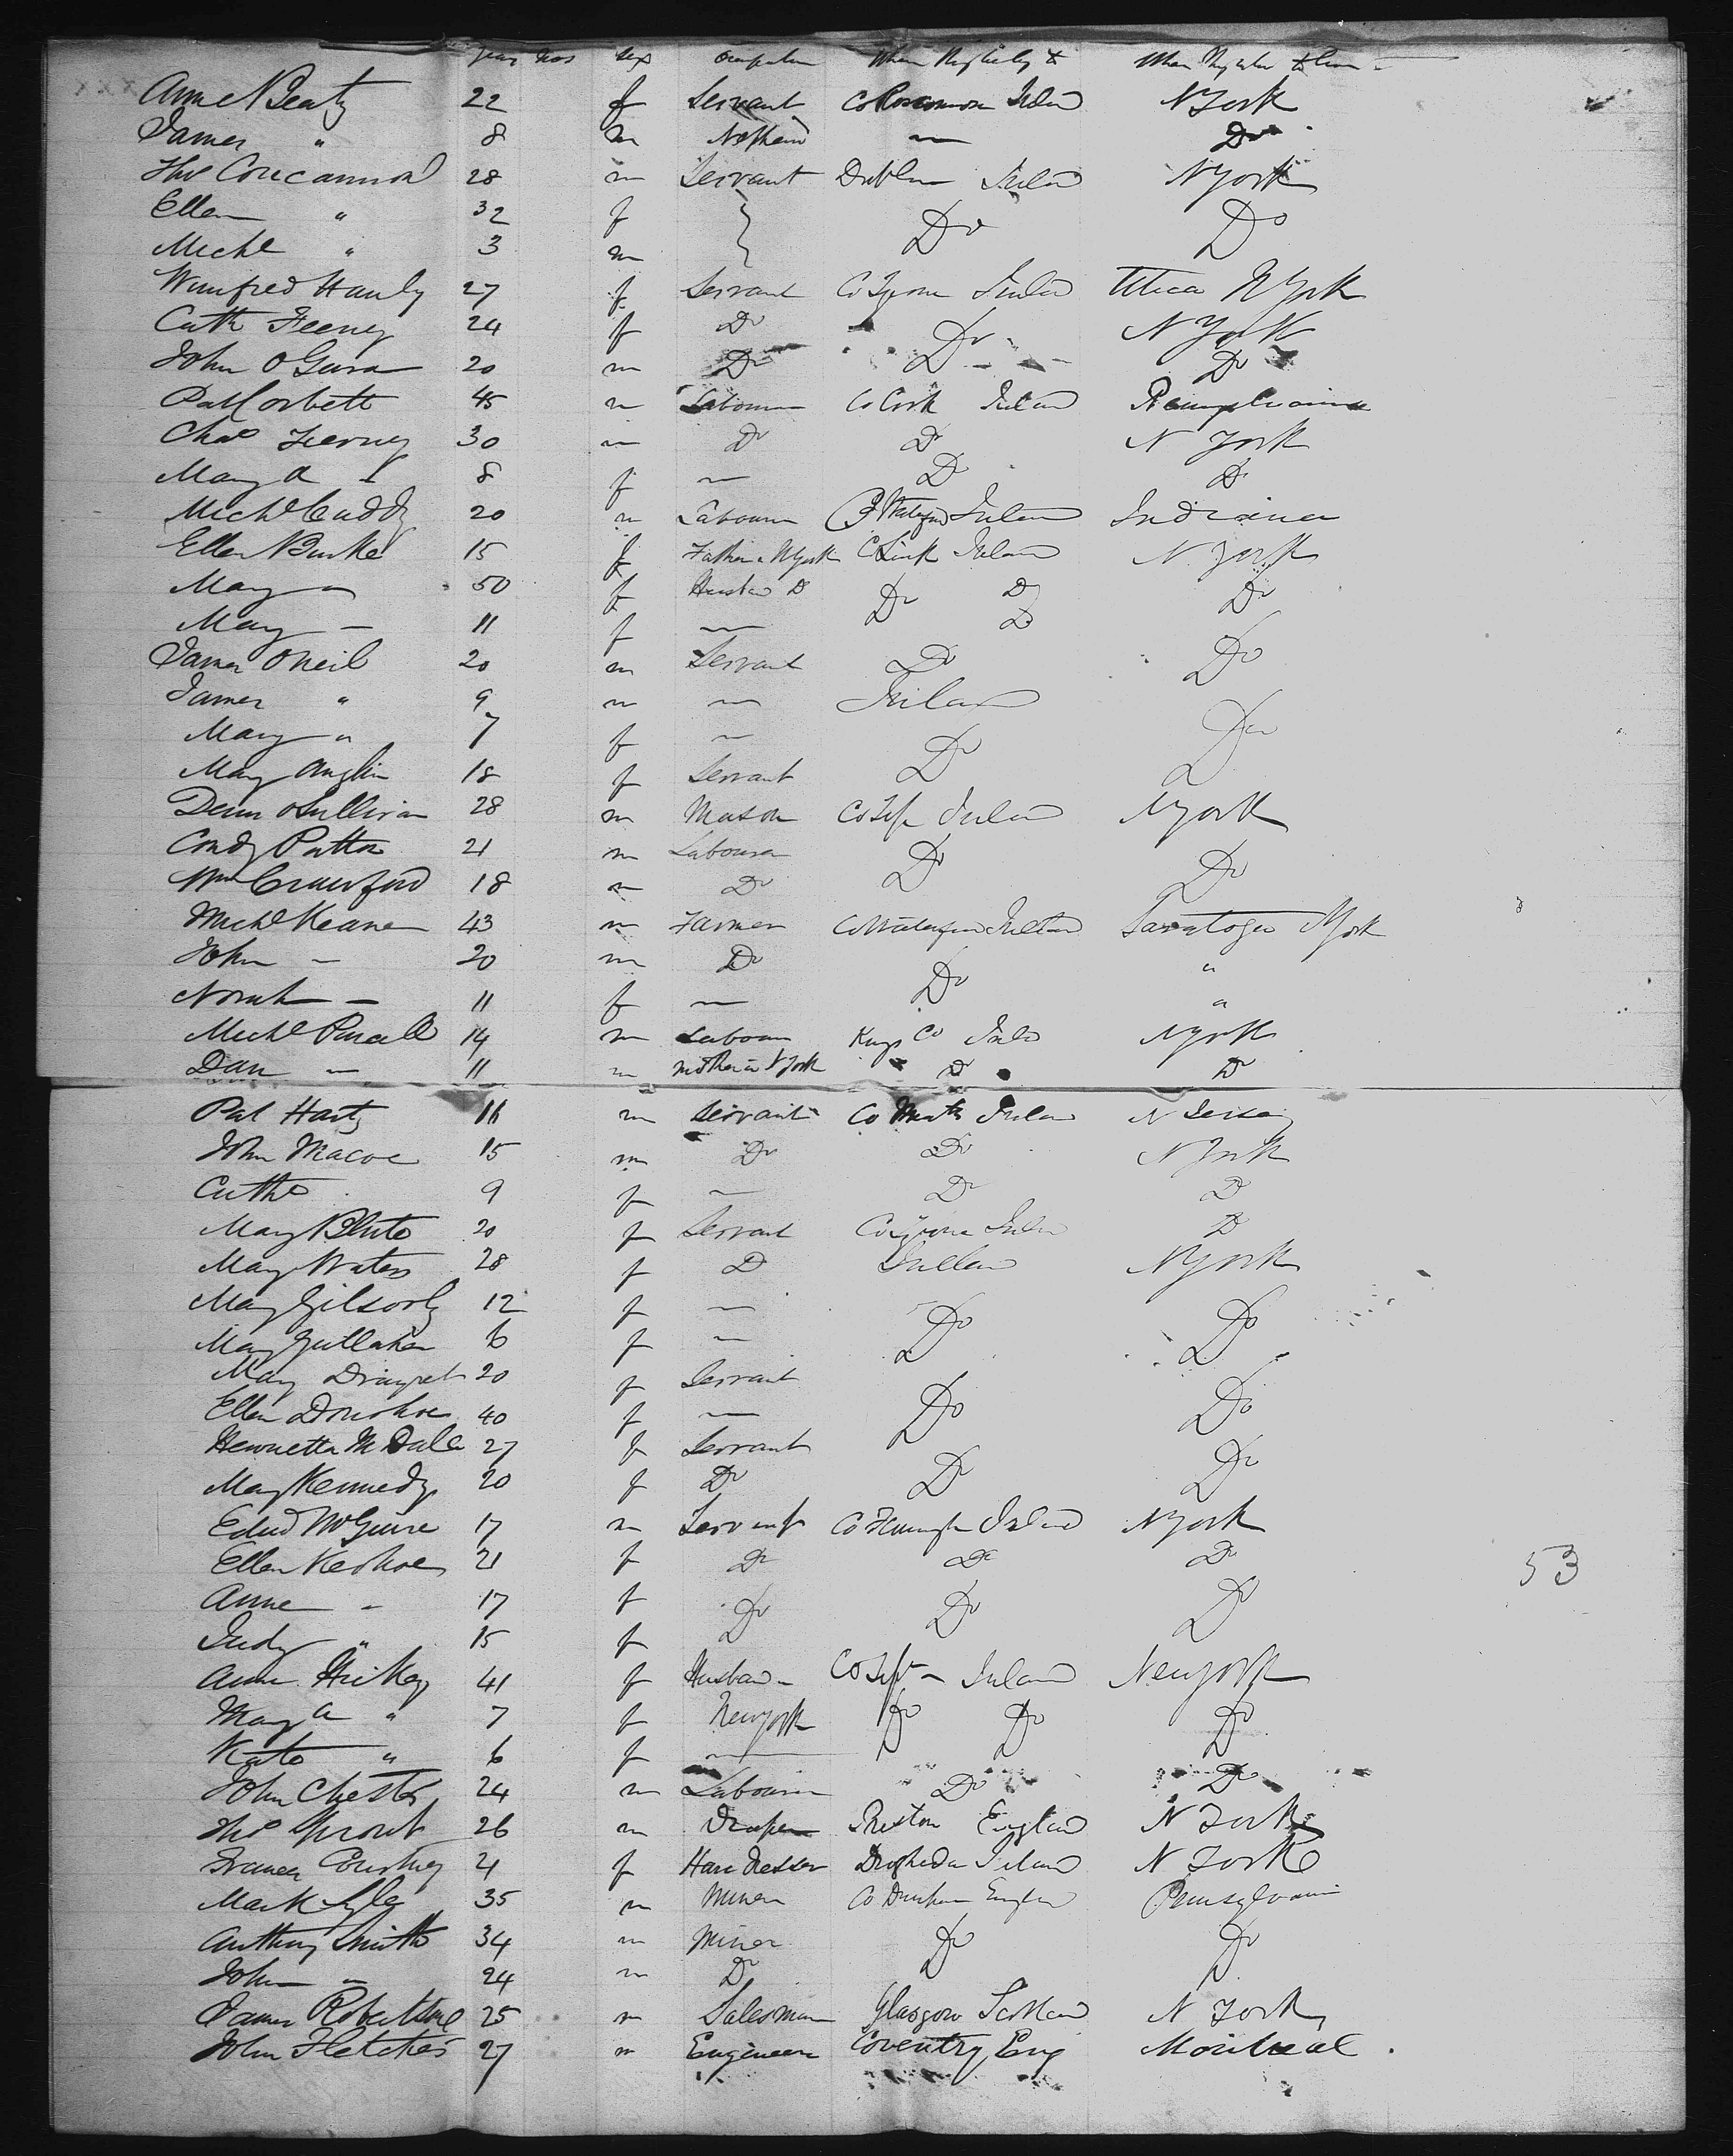 years mos sex occupation
Anne Beaty 22 f Servant Co Roscommon Irelan N York
James " 8 m Nephew — Do
Thos Concannon 28 m Servant Dublin Irelan N York
Ellen " 32 f Do Do
Michl " 3 m
Winifred Hanly 27 f Servant Co Tyrone Irelan Utica N York
Cath Feeney 24 f Do Do N York
John O Gara 20 m Do Do Do
Pat Corbett 45 m Labourer Co Cork Ireland Pennsylvania
Chas Tierney 30 m Do Do N York
Mary A — 8 f — Do Do
Michl Cuddy 20 m Labourer Ireland Indiana
Ellen Burke 15 f Father N York Irelan N York
Mary " 50 f Husban Do Do Do Do
Mary — 11 f — Do
James O Neil 20 m Servant Do Do
James " 9 m — Irelan
Mary " 7 f — Do Do
Mary Anglin 18 f Servant
Denis O Sullivan 28 m Mason Co Tip Irelan N York
Condy Patton 21 m Labourer Do Do
Wm Crawford 18 m Do
Michl Keane 43 m Farmer Co Waterford Irelan Saratoga N York
John — 20 m Do Do "
Norah — 11 f — "
Michl Purcell 14 m Labour Kings Co Irela N York
Dan — 11 m Mother in N York Do Do
Pat Harty 16 m Servant Co Meath Irelan N Jersey
John Macoe 15 m Do Do N York
Cathe 9 f — Do Do
Mary Blute 20 f Servant Co Tyrone Irelan Do
Mary Waters 28 f Do Irelan N York
Mary 12 f — Do Do
Mary 6 f —
Mary 20 f Servant
Ellen Donohoe 40 f — Do Do
Henrietta M Dale 27 f Servant
Mary Kennedy 20 f Do Do Do
Edwd McGuire 17 m Servant Irelan N York
Ellen Keohoe 21 f Do Do Do
Anne " 17 f Do Do Do
Judy " 15 f
Anne Hickey 41 f Husban Co Tip Irelan New York
Mary A " 7 f New York Do Do Do
Kate " 6 f —
John Chester 24 m Labourer Do Do
Thos Sprout 26 m Draper Preston England N York
Frances Courtney 21 f Hair dresser Drogheda Ireland N York
Mark Lyle 35 m Miner Co Durham Englan Pennsylvania
Anthony Smith 34 m Miner Do Do
John " 24 m Do
James Robertson 25 m Salesman Glasgow Scotlan N York
John Fletcher 27 m Engineer Coventry Eng Montreal
53